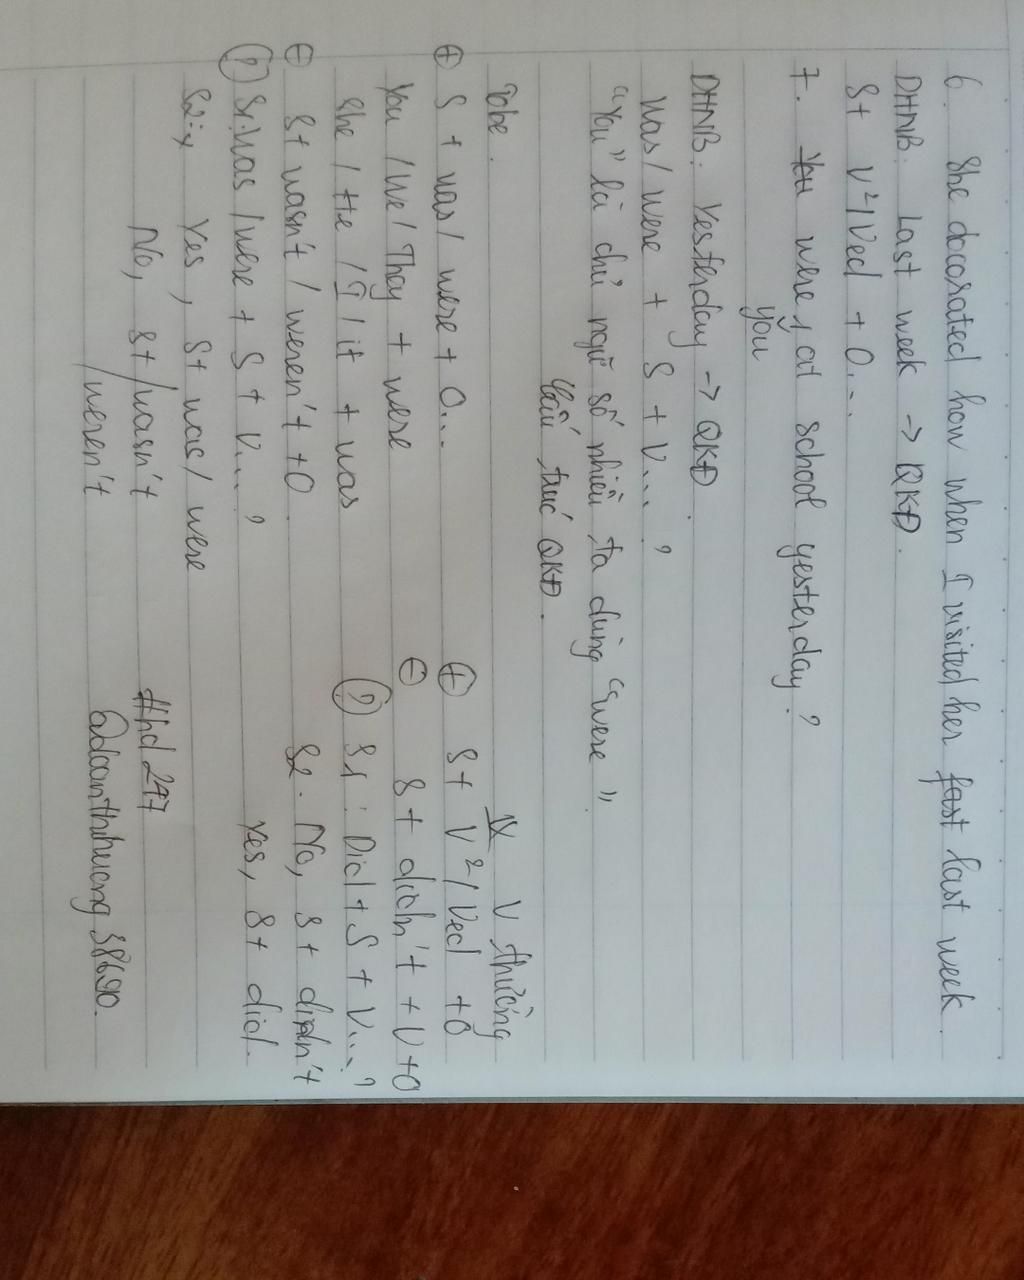 6. She docorated how when I visited her last week.
DHNB. Last week -> QKĐ.
S+ V²/Ved + O...
7. You were, at school yesterday?
you
DHNB. Yesterday -> QKĐ.
Was/ were + S + V...?
"You" là chủ ngữ số nhiều ta dùng "were".
Cấu trúc QKĐ.
Tobe. V thường
(+) S + was/ were + O...
You /We/ They + were
She / He / I / it + was
(-) S+ wasn't / weren't +O.
(?) S1: Was /were + S + V...?
S2: Yes, S+ was/ were
No, S+ /wasn't
/weren't
(+) S+ V²/Ved +O
(-) S + didn't + V +O
(?) S1: Did + S + V...?
S2. No, S + didn't
Yes, S+ did.
#hd 247
@doanthihuong38690.